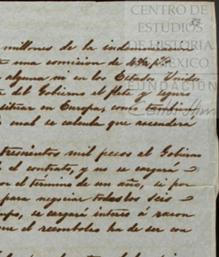 CENTRO DE
ESTUDIOS
DE HISTORIA
DE MEXICO
FUNDACIÓN
millones de la indem
una comision de 4 %
alguna ni en los Estados Unidos
del Gobierno el flete y seguro
situar en Europa, como tambien
cual se calcula que ascenderá
trescientos mil pesos el Gobierno
el contrato, y no se cargará
el termino de un año, si por
para negociar todos los seis
se cargará interes á razon
que el reembolso ha de ser con